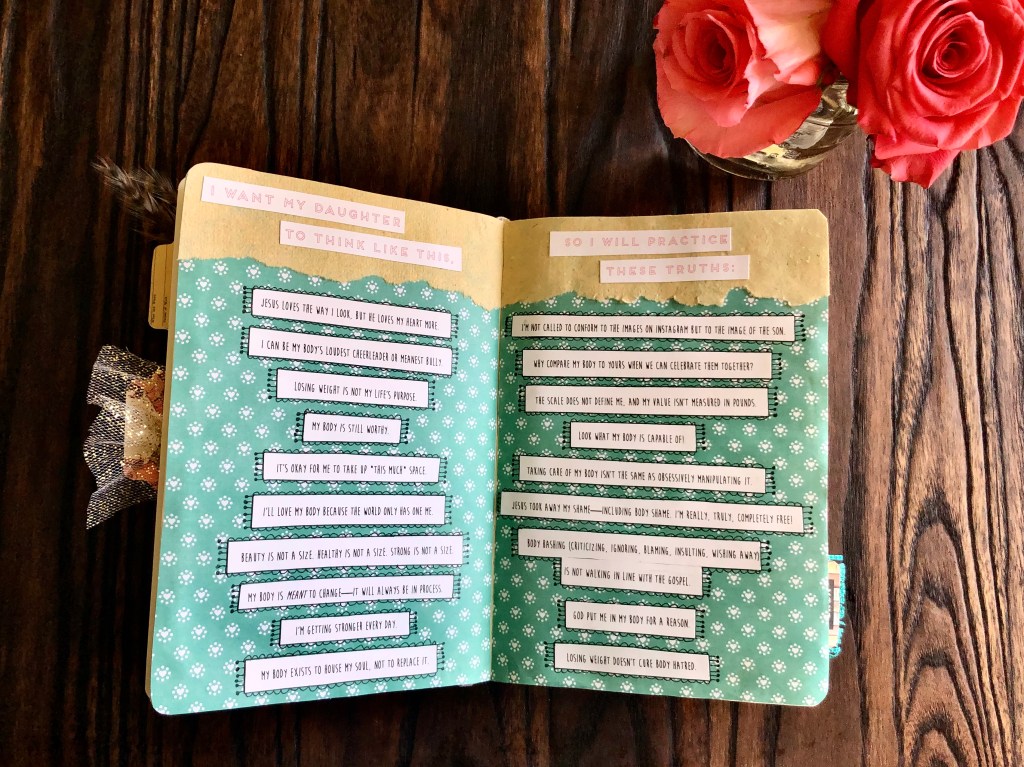 I WANT MY DAUGHTER
TO THINK LIKE THIS,
JESUS LOVES THE WAY I LOOK, BUT HE LOVES MY HEART MORE.
I CAN BE MY BODY'S LOUDEST CHEERLEADER OR MEANEST BULLY.
LOSING WEIGHT IS NOT MY LIFE'S PURPOSE.
MY BODY IS STILL WORTHY.
IT'S OKAY FOR ME TO TAKE UP *THIS MUCH* SPACE.
I'LL LOVE MY BODY BECAUSE THE WORLD ONLY HAS ONE ME.
BEAUTY IS NOT A SIZE. HEALTHY IS NOT A SIZE. STRONG IS NOT A SIZE.
MY BODY IS MEANT TO CHANGE—IT WILL ALWAYS BE IN PROCESS.
I'M GETTING STRONGER EVERY DAY.
MY BODY EXISTS TO HOUSE MY SOUL, NOT TO REPLACE IT.
SO I WILL PRACTICE
THESE TRUTHS:
I'M NOT CALLED TO CONFORM TO THE IMAGES ON INSTAGRAM BUT TO THE IMAGE OF THE SON.
WHY COMPARE MY BODY TO YOURS WHEN WE CAN CELEBRATE THEM TOGETHER?
THE SCALE DOES NOT DEFINE ME, AND MY VALUE ISN'T MEASURED IN POUNDS.
LOOK WHAT MY BODY IS CAPABLE OF!
TAKING CARE OF MY BODY ISN'T THE SAME AS OBSESSIVELY MANIPULATING IT.
JESUS TOOK AWAY MY SHAME—INCLUDING BODY SHAME. I'M REALLY, TRULY, COMPLETELY FREE!
BODY BASHING (CRITICIZING, IGNORING, BLAMING, INSULTING, WISHING AWAY)
IS NOT WALKING IN LINE WITH THE GOSPEL.
GOD PUT ME IN MY BODY FOR A REASON.
LOSING WEIGHT DOESN'T CURE BODY HATRED.